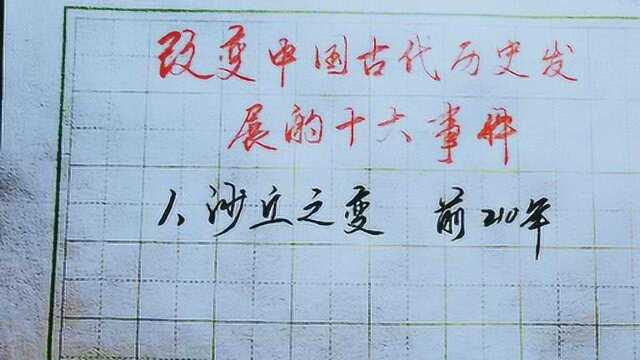 改变中国古代历史发
展的十大事件
1、沙丘之变 前210年